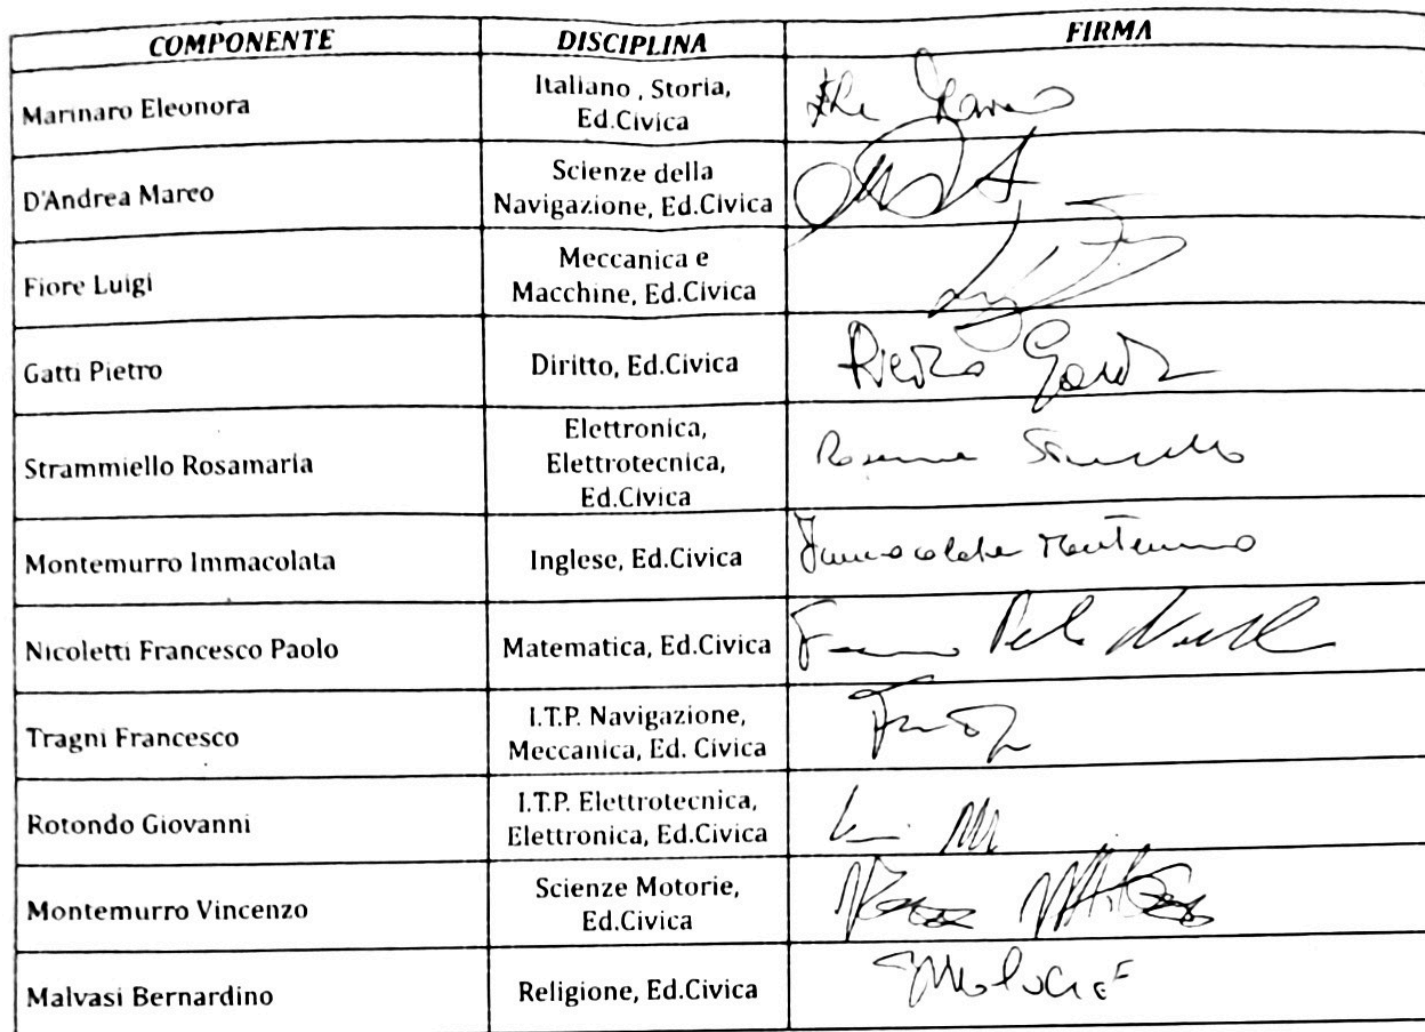 COMPONENTE DISCIPLINA FIRMA
Marinaro Eleonora
Italiano , Storia,
Ed.Civica
D'Andrea Marco
Scienze della
Navigazione, Ed.Civica
Fiore Luigi
Meccanica e
Macchine, Ed.Civica
Gatti Pietro
Diritto, Ed.Civica
Pietro Gatti
Strammiello Rosamaria
Elettronica,
Elettrotecnica,
Ed.Civica
Montemurro Immacolata
Inglese, Ed.Civica
Immacolata Montemurro
Nicoletti Francesco Paolo
Matematica, Ed.Civica
Tragni Francesco
I.T.P. Navigazione,
Meccanica, Ed. Civica
Rotondo Giovanni
I.T.P. Elettrotecnica,
Elettronica, Ed.Civica
Montemurro Vincenzo
Scienze Motorie,
Ed.Civica
Malvasi Bernardino
Religione, Ed.Civica